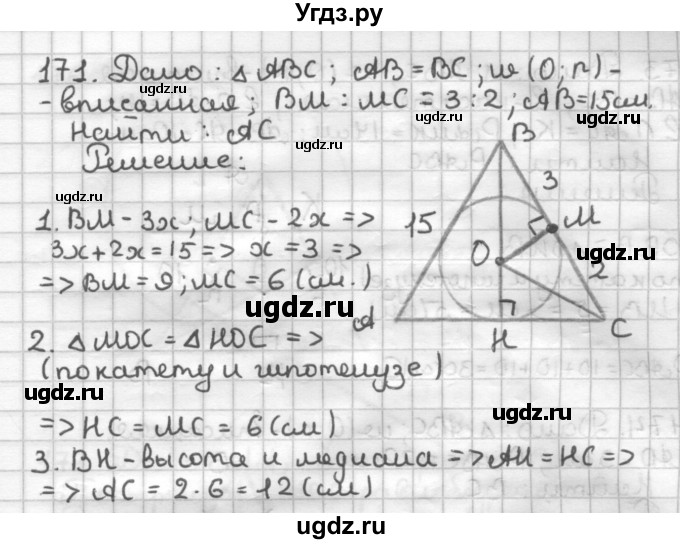 Угдз.ру
171. Дано: △ABC; AB=BC; w(O;r)-
- вписанная; BM:MC=3:2; AB=15см.
Найти: AC
Решение:
1. BM-3x; MC-2x =>
3x+2x=15=> x=3 =>
=> BM=9; MC=6(см.)
2. △MOC=△HOC =>
(по катету и гипотенузе)
=> HC=MC=6(см)
3. BH-высота и медиана => AH=HC=>
=> AC=2·6=12(см)
B
3
15
M
O
2
A
H
C
ugdz.ru
ugdz.ru
ugdz.ru
ugdz.ru
ugdz.ru
ugdz.ru
ugdz.ru
ugdz.ru
ugdz.ru
ugdz.ru
ugdz.ru